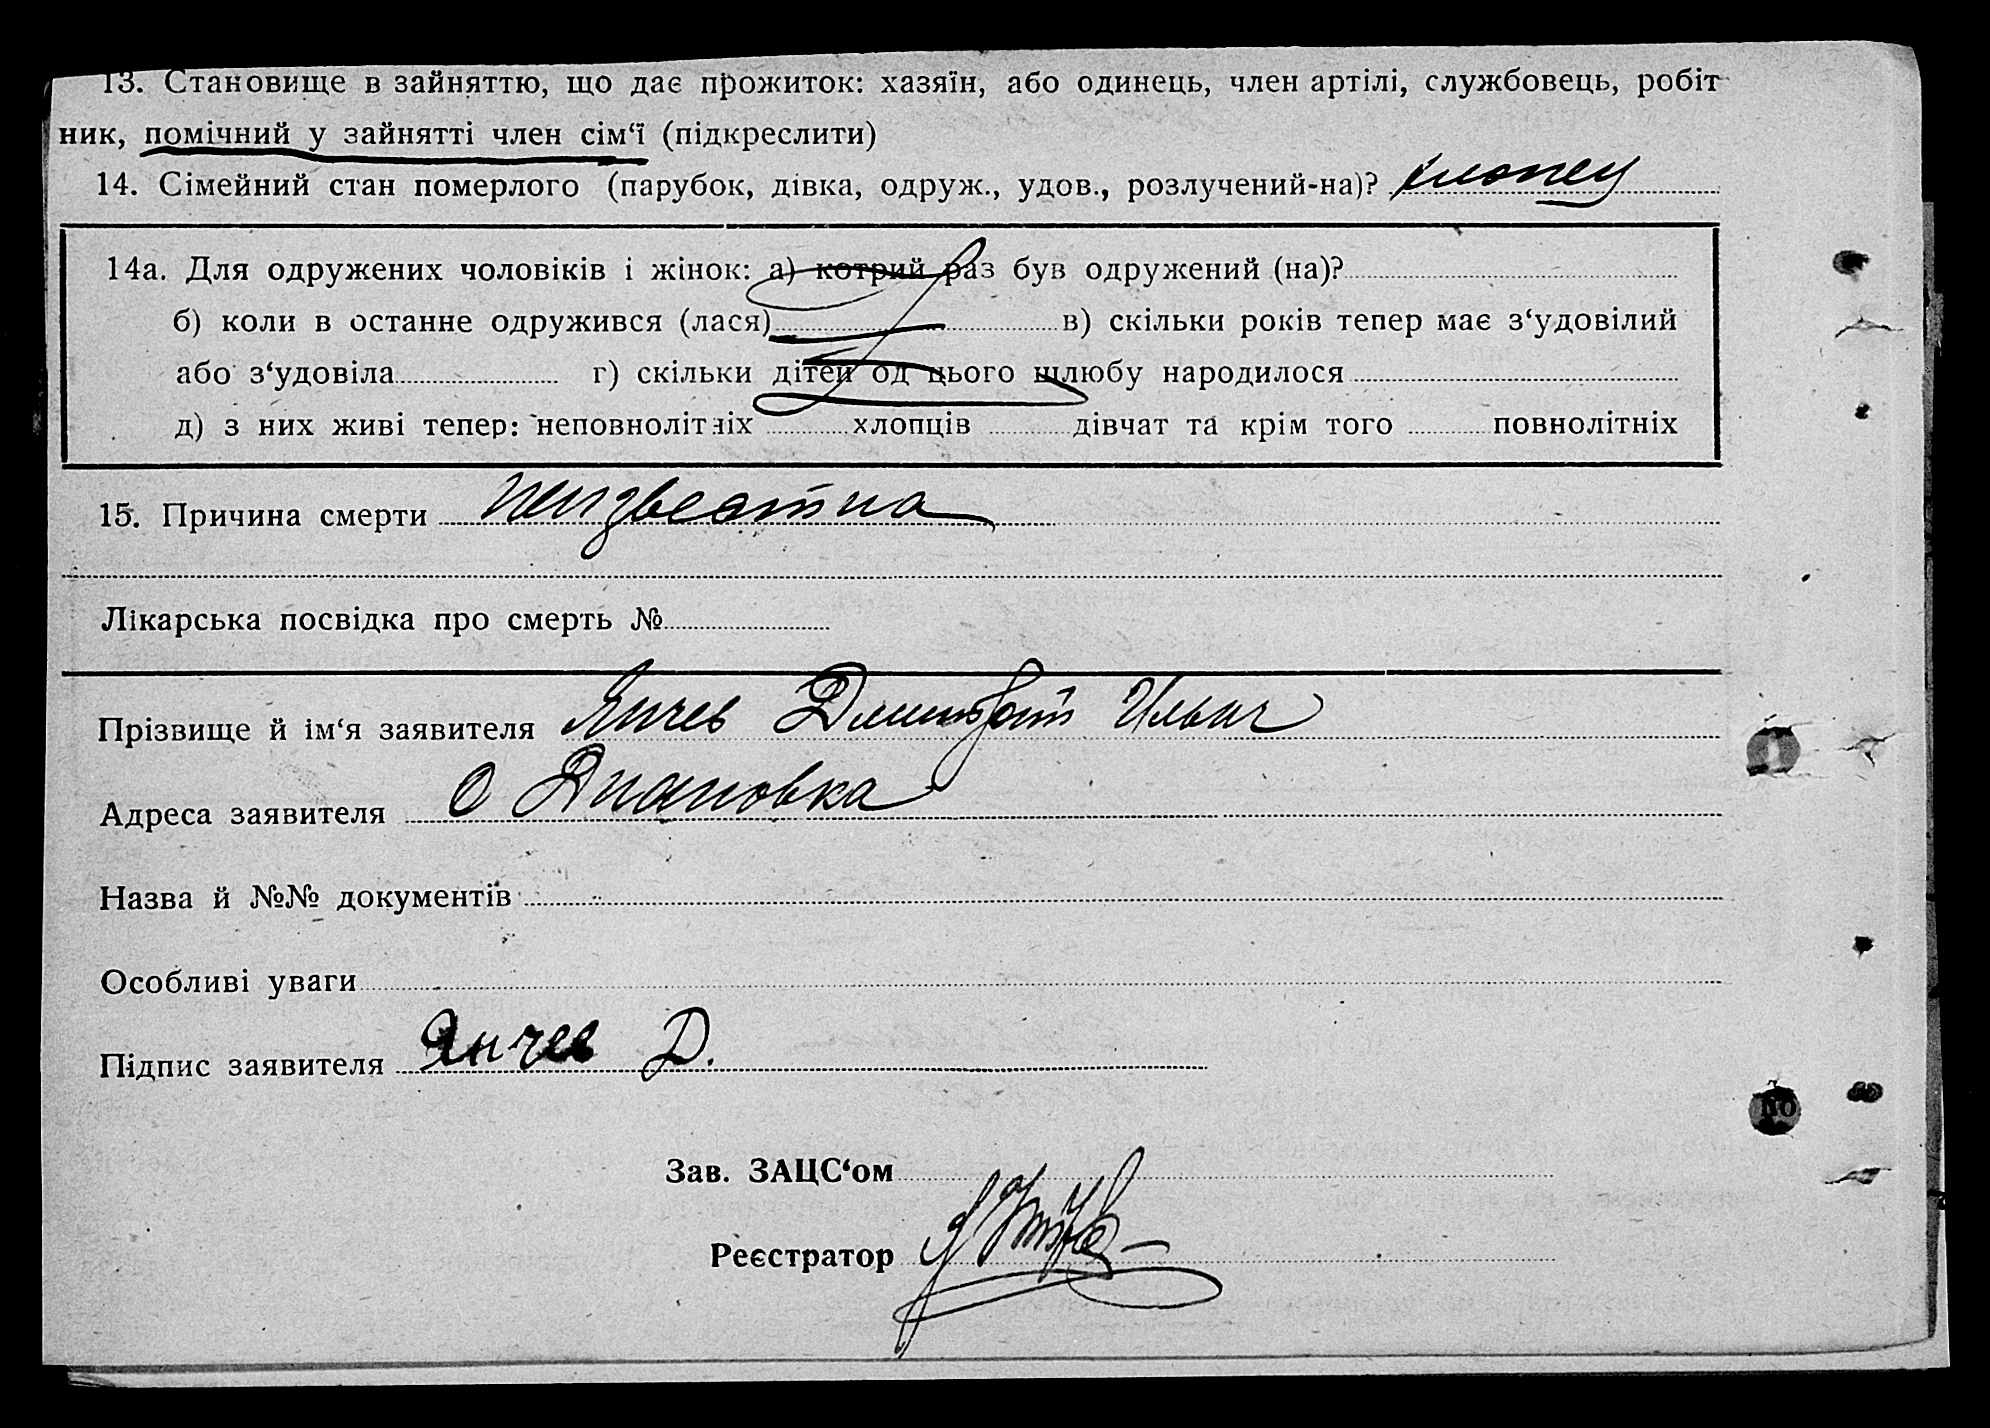 13. Становище в зайняттю, що дає прожиток: хазяїн, або одинець, член артілі, службовець, робіт
ник, помічний у зайнятті член сім‘ї (підкреслити)
14. Сімейний стан померлого (парубок, дівка, одруж., удов., розлучений-на)? хлопец
14а. Для одружених чоловіків і жінок: а) котрий раз був одружений (на)?
б) коли в останне одружився (лася) в) скільки років тепер має з‘удовілий
або з‘удовіла г) скільки дітей од цього шлюбу народилося
д) з них живі тепер: неповнолітніх хлопців дівчат та крім того повнолітніх
15. Причина смерти неизвестна
Лікарська посвідка про смерть №
Прізвище й ім‘я заявителя Янчев Дмитрий Ильич
Адреса заявителя с Диановка
Назва й №№ документів
Особливі уваги
Підпис заявителя Янчев Д.
Зав. ЗАЦС‘ом
Реєстратор